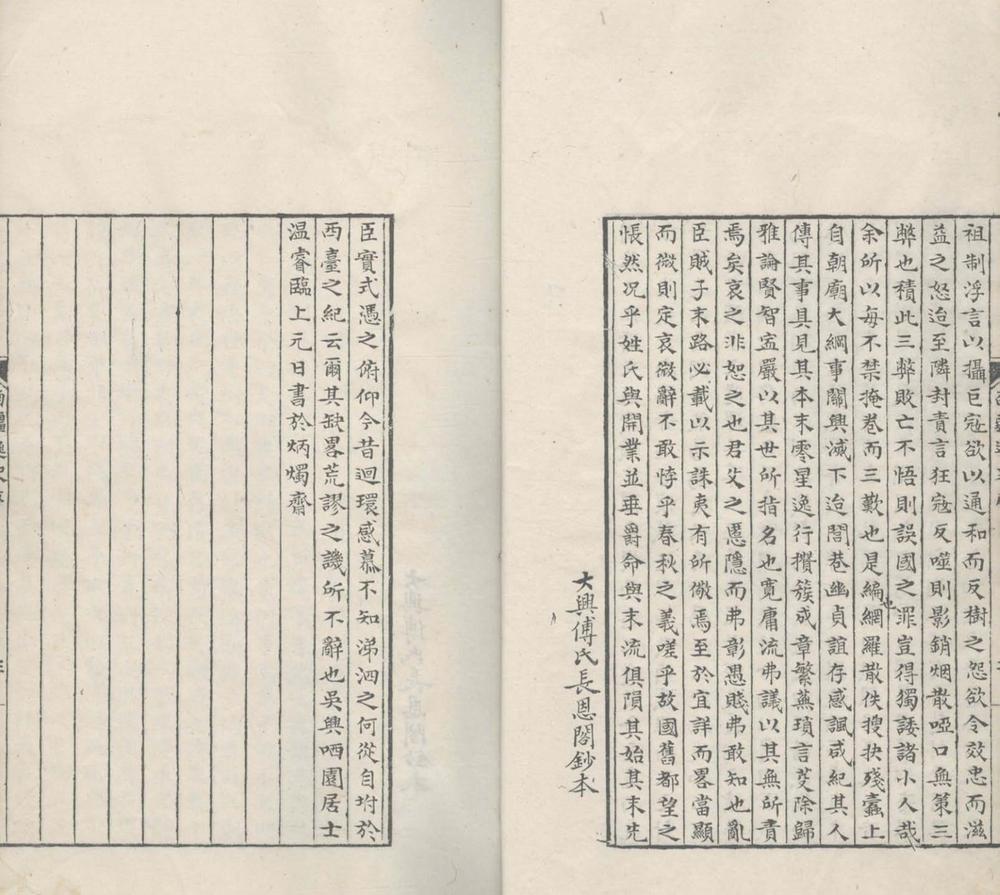 祖制浮言以攝巨寇欲以通和而反樹之怨欲令效忠而滋
益之怒迨至隣封責言狂寇反噬則影銷烟散啞口無策三
弊也積此三弊敗亡不悟則誤國之罪豈得獨諉諸小人哉
余所以每不禁掩卷而三歎也是編也網羅散佚搜抉殘蠹上
自朝廟大綱事關興滅下迨閭巷幽貞誼存感諷咸紀其人
傳其事具見其本末零星逸行攅簇成章繁蕪瑣言芟除歸
雅論賢智宜嚴以其世所指名也寛庸流弗議以其無所責
焉矣哀之非恕之也君父之慝隱而弗彰愚賤弗敢知也亂
臣賊子末路必載以示誅夷有所儆焉至於宜詳而畧當顯
而微則定哀微辭不敢悖乎春秋之義嗟乎故國舊都望之
悵然况乎姓氏與開業並垂爵命與末流俱隕其始其末先
大興傅氏長恩閣鈔本
臣實式憑之俯仰今昔迴環感慕不知涕泗之何從自坿於
西臺之紀云爾其缺畧荒謬之譏所不辭也吳興哂園居士
温睿臨上元日書於炳燭齋